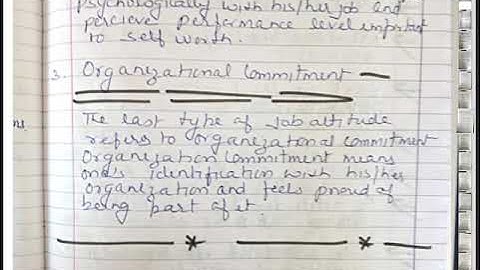 psychologically with his/her job and
percieve performance level important
to self worth.
3. Organizational Commitment —
The last type of Job attitude
refers to organizational commitment
Organization commitment means
one's identification with his/her
organization and feels proud of
being part of it.